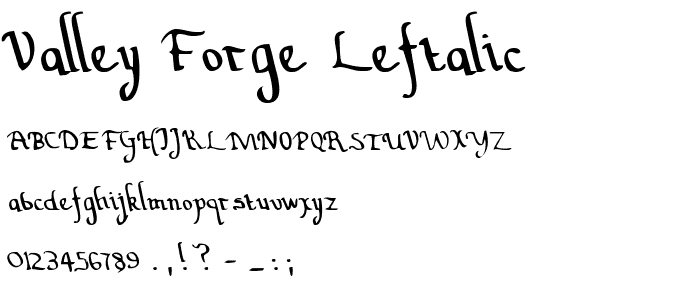 Valley Forge Leftalic
ABCDEFGHIJKLMNOPQRSTUVWXYZ
abcdefghijklmnopqrstuvwxyz
0123456789 .,!? - _ : ;